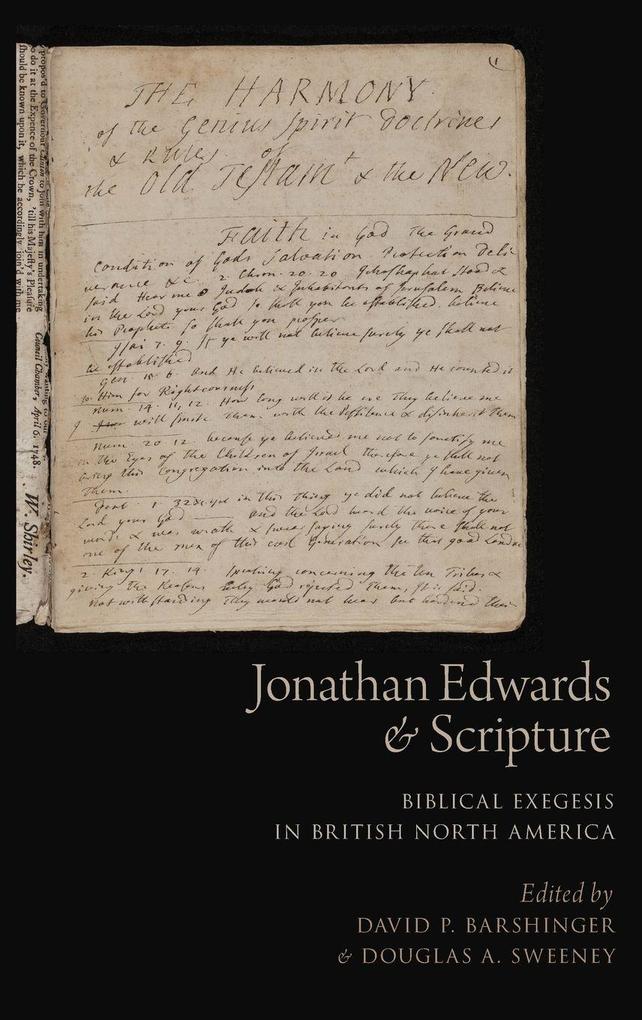 (1
THE HARMONY
of the Genius Spirit Doctrines
& Rules of
the Old Testamt & the New.
Faith in God The Grand
Condition of Gods Salvation Protection Deli
verance &c. 2 Chron. 20. 20 Jehoshaphat Stood &
said Hear me O Judah & Inhabitants of Jerusalem Believe
in the Lord your God so shall you be established. believe
his Prophets so shall you prosper
Isai 7. 9. If ye will not believe surely ye shall not
be established
Gen 15. 6. And He believed in the Lord and He counted it
to Him for Righteousness
Num. 14. 11, 12. How long will it be ere They believe me
I will smite Them with the Pestilence & disinherit them
Num 20 12 because ye believed me not to sanctify me
in the Eyes of the Children of Israel therefore ye shall not
bring this Congregation into the Land which I have given
them.
1. 32 &c. yet in this thing ye did not believe the
Lord your God and the Lord heard the voice of your
words & was wrath & sware saying surely there shall not
one of the men of this Generation see that good Land
2 Kings 17. 14. speaking concerning the ten Tribes &
giving the Reason why God rejected Them, it is said.
Notwithstanding They would not hear but hardened their
propos'd to Governour to join with him in undertaking
to do it at the Expence of the Crown, 'till his Majesty's Pleasure
should be known upon it, which he accordingly join'd with me
Council Chamber, April 6. 1748.
W. Shirley.
Jonathan Edwards
& Scripture
BIBLICAL EXEGESIS
IN BRITISH NORTH AMERICA
Edited by
DAVID P. BARSHINGER
& DOUGLAS A. SWEENEY